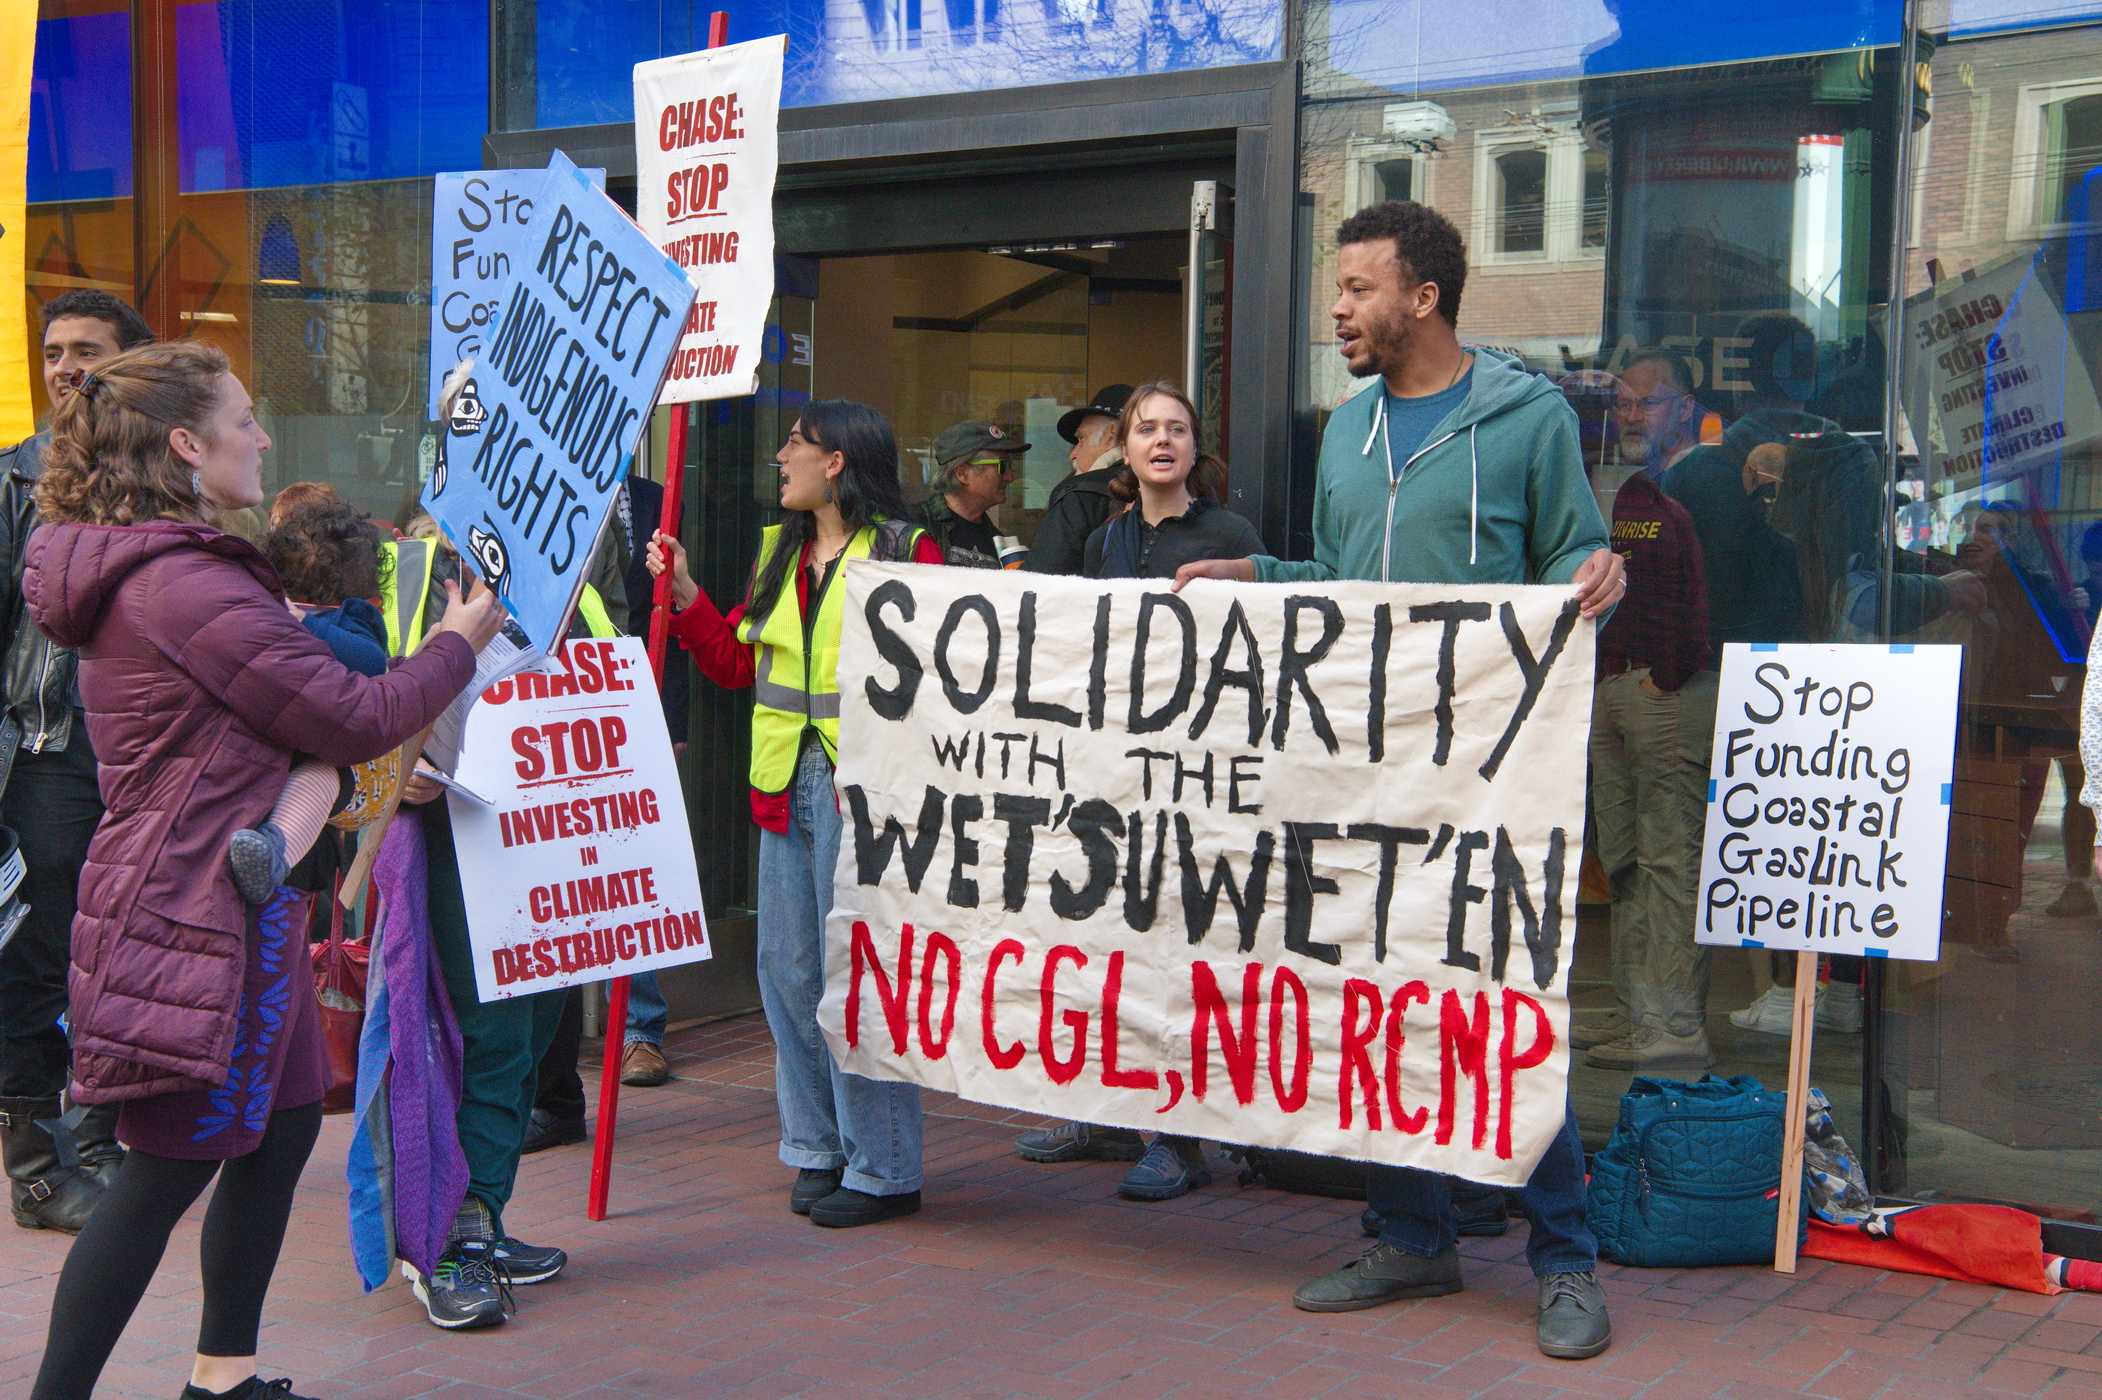 CHASE:
STOP
INVESTING
Sto
Fun
Coa
G
RESPECT
INDIGENOUS
RIGHTS
CHASE:
STOP
INVESTING
IN
CLIMATE
DESTRUCTION
SOLIDARITY
WITH THE
WET'SUWET'EN
NO CGL, NO RCMP
Stop
Funding
Coastal
GasLink
Pipeline
CHASE:
STOP
INVESTING
CLIMATE
DESTRUCTION